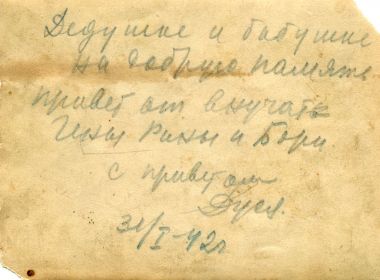 Дедушке и бабушке
на добрую память
привет от внучат
Гены Рины и Бори.
с приветом
Дуся.
31/I-42г